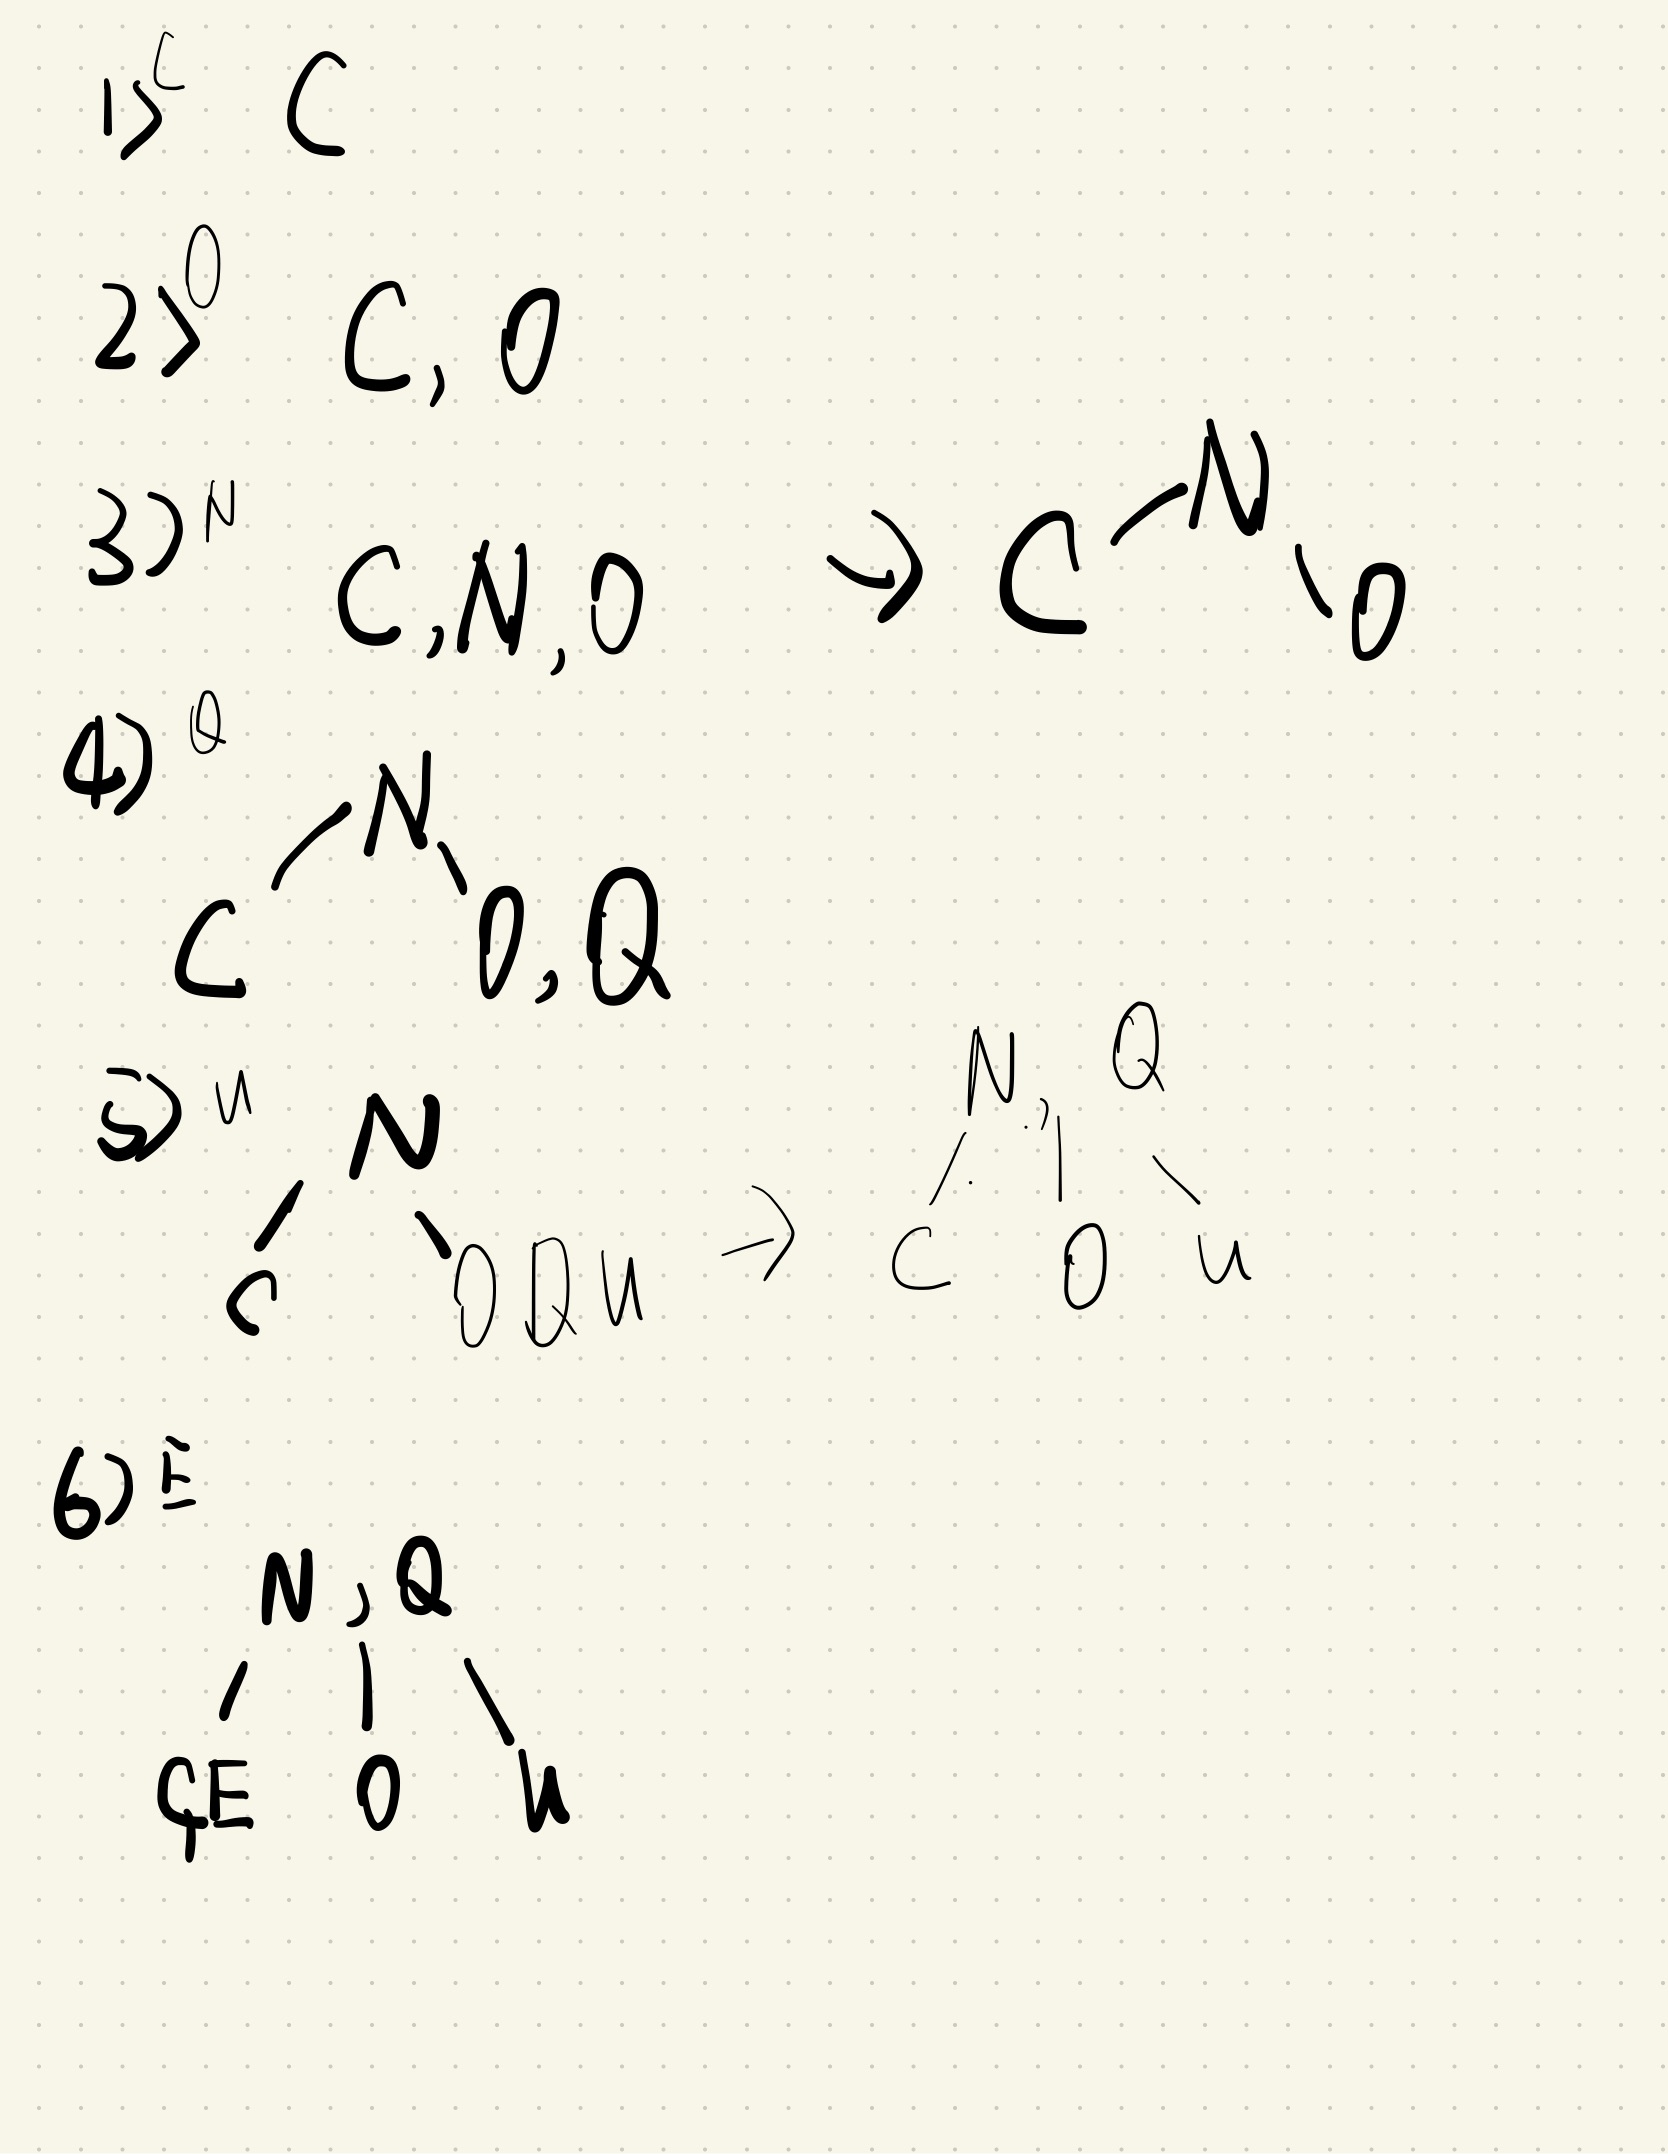 1) C C
2) O C, O
3) N C, N, O → C N O
4) Q
N
C O, Q
5) U N
C O Q U → N, Q
C O U
6) E
N, Q
C, E O U